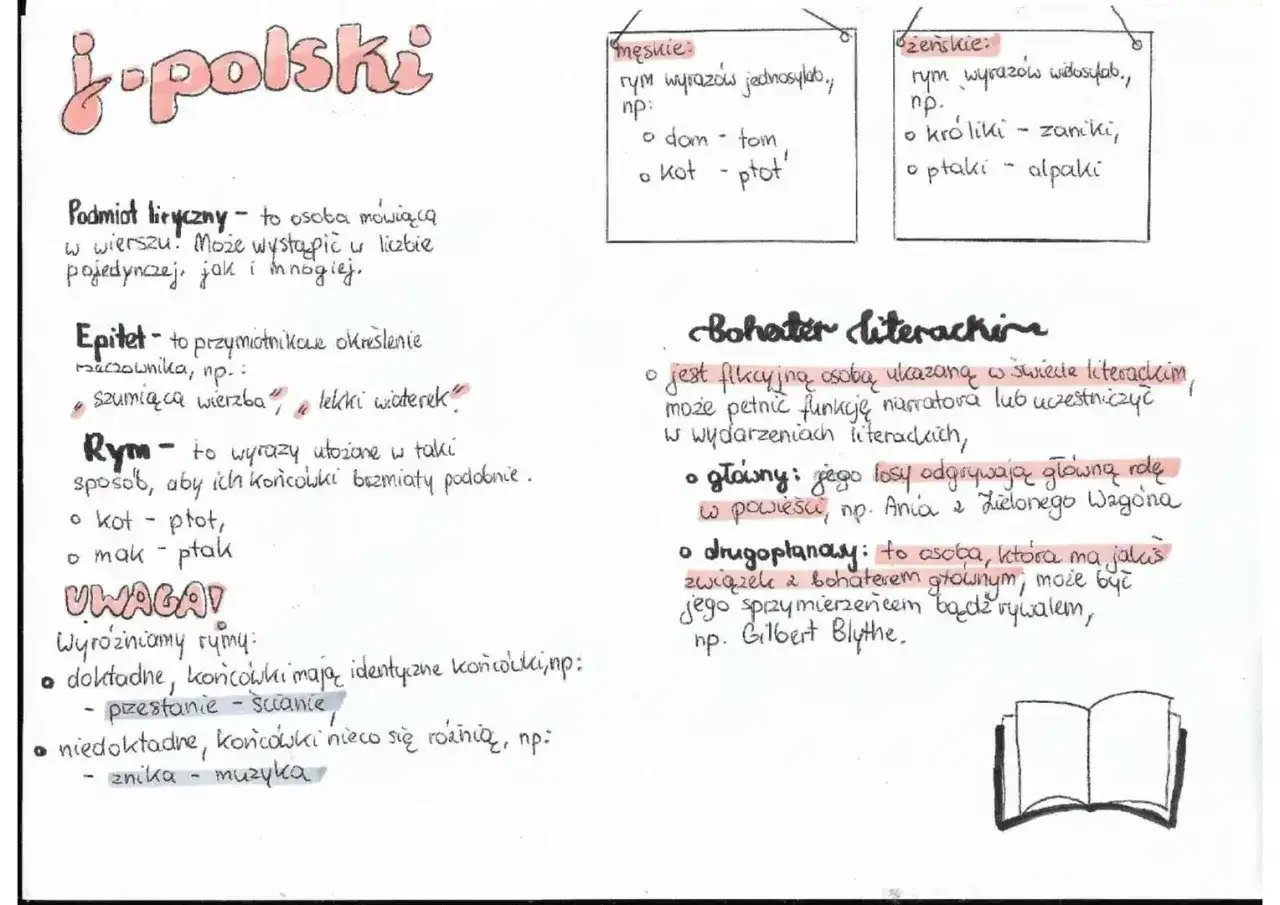 j. polski
Podmiot liryczny - to osoba mówiąca
w wierszu. Może wystąpić w liczbie
pojedynczej, jak i mnogiej.
Epitet - to przymiotnikowe określenie
rzeczownika, np.:
„szumiąca wierzba", „lekki wiaterek"
Rym - to wyrazy ułożone w taki
sposób, aby ich końcówki brzmiały podobnie.
kot - płot,
mak - ptak
UWAGA!
Wyróżniamy rymy:
dokładne, końcówki mają identyczne końcówki, np:
- przestanie - ścianie,
niedokładne, końcówki nieco się różnią, np:
- znika - muzyka
męskie:
rym wyrazów jednosylab.,
np:
dom - tom,
kot - płot
żeńskie:
rym wyrazów
np.
króliki - zaniki,
ptaki - alpaki
Bohater literacki
jest fikcyjną osobą ukazaną w świecie literackim,
może pełnić funkcję narratora lub uczestniczyć
w wydarzeniach literackich,
główny: jego losy odgrywają główną rolę
w powieści, np. Ania z Zielonego Wzgórza
drugoplanowy: to osoba, która ma jakiś
związek z bohaterem głównym, może być
jego sprzymierzeńcem bądź rywalem,
np. Gilbert Blythe.